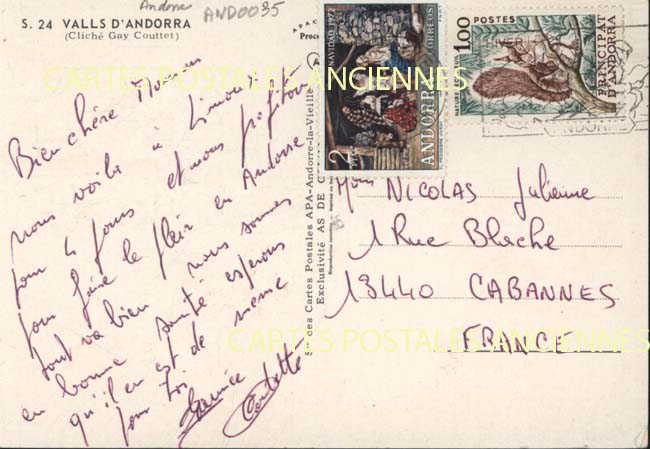 Andorre
AND0035
S. 24 VALLS D'ANDORRA
(Cliché Gay Couttet)
Bien chère Maman
nous voilà à Limoux
pour 4 jours et nous profitons
pour faire le plein en Andorre
tout va bien nous sommes
en bonne santé espérons
qu'il en est de même
pour toi
NAVIDAD 1972
CORREOS
2 PTAS
ANDORRA
POSTES
1.00
PRINCIPAT
D'ANDORRA
ANDORRE
Exclusivité AS DE
Services Cartes Postales APA-Andorre-la-Vieille
Mme NICOLAS Julienne
1 Rue Blache
13440 CABANNES
FRANCE
CARTES POSTALES ANCIENNES
CARTES POSTALES ANCIENNES